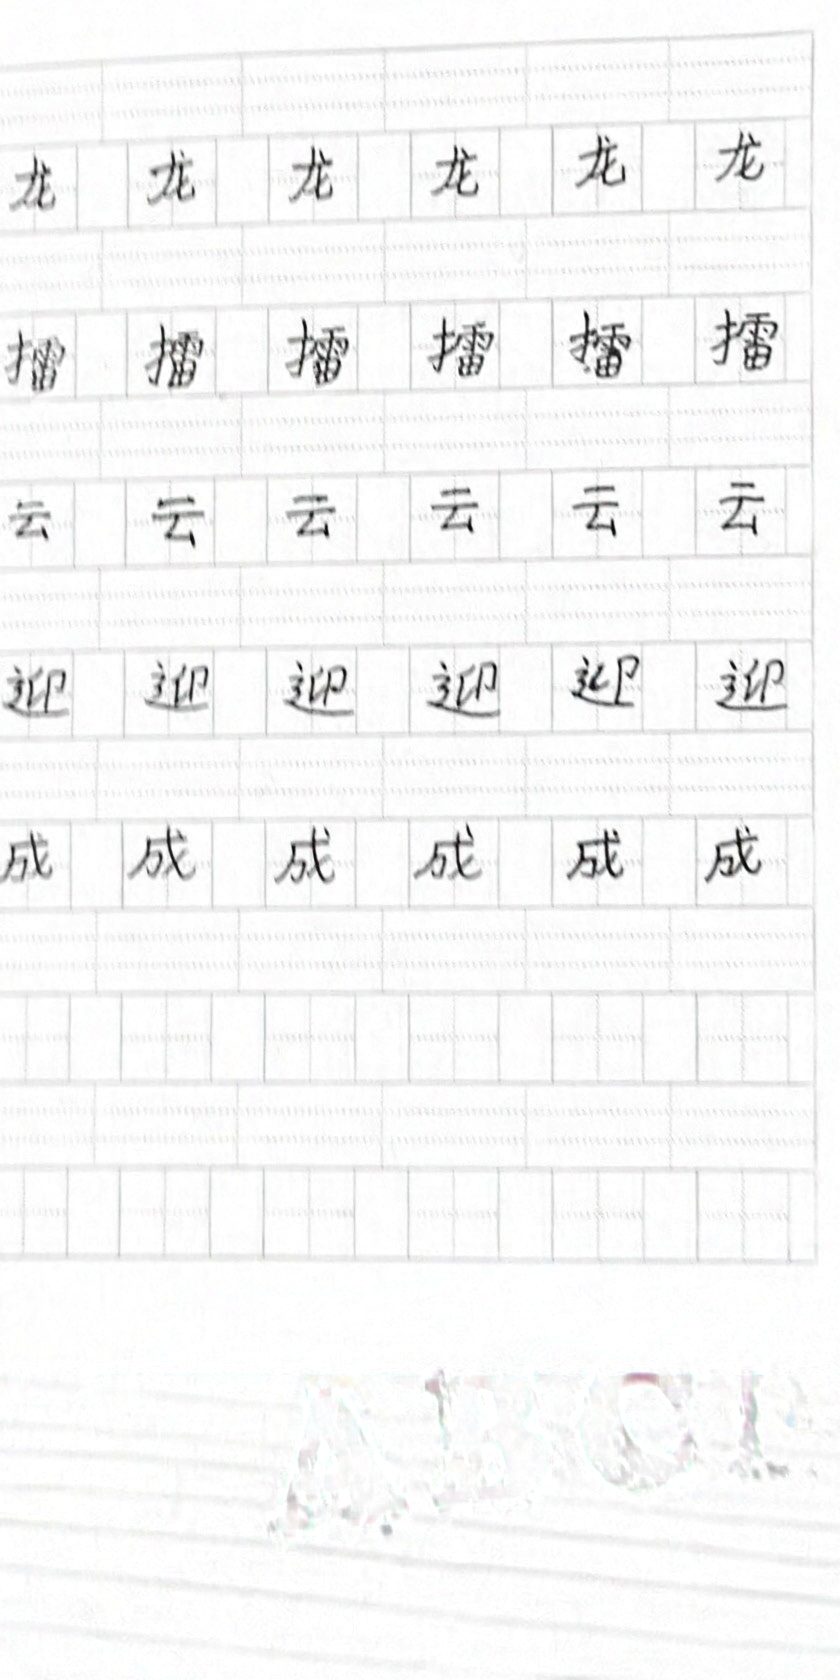 龙 龙 龙 龙 龙 龙
擂 擂 擂 擂 擂 擂
云 云 云 云 云 云
迎 迎 迎 迎 迎 迎
成 成 成 成 成 成